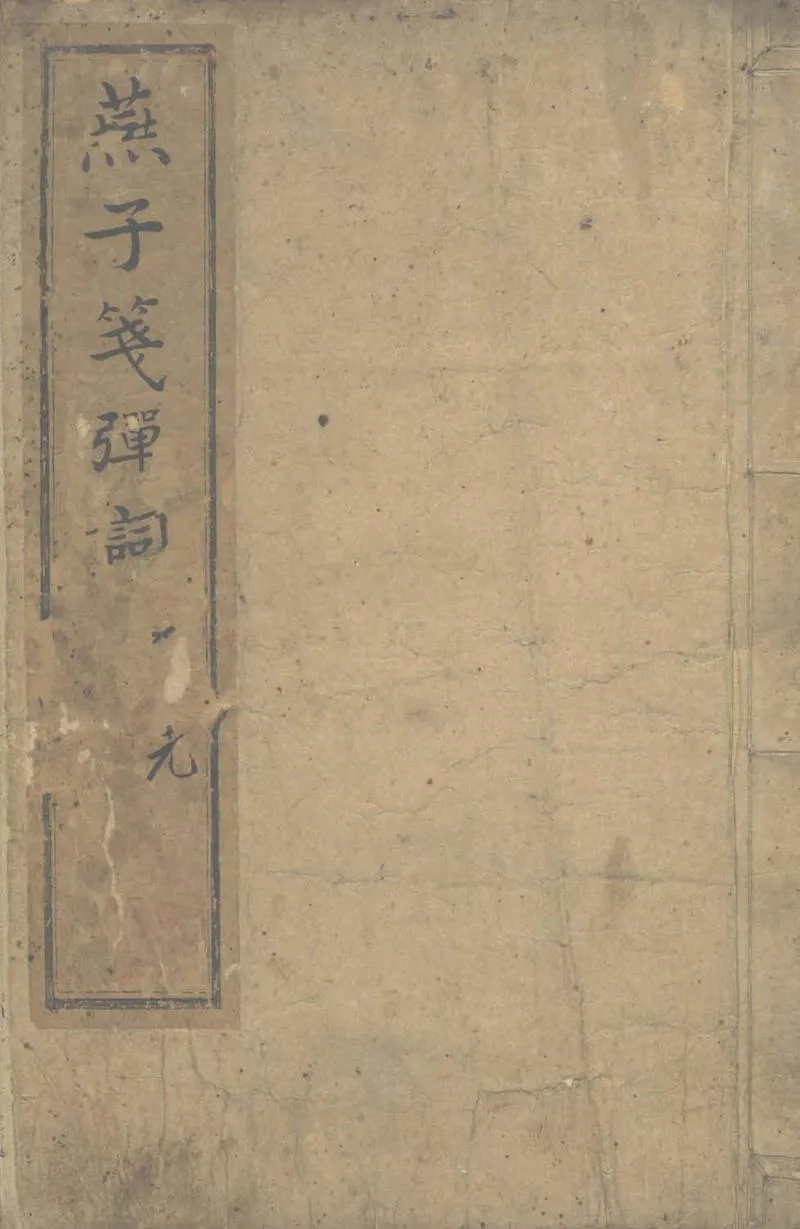 燕子箋彈詞